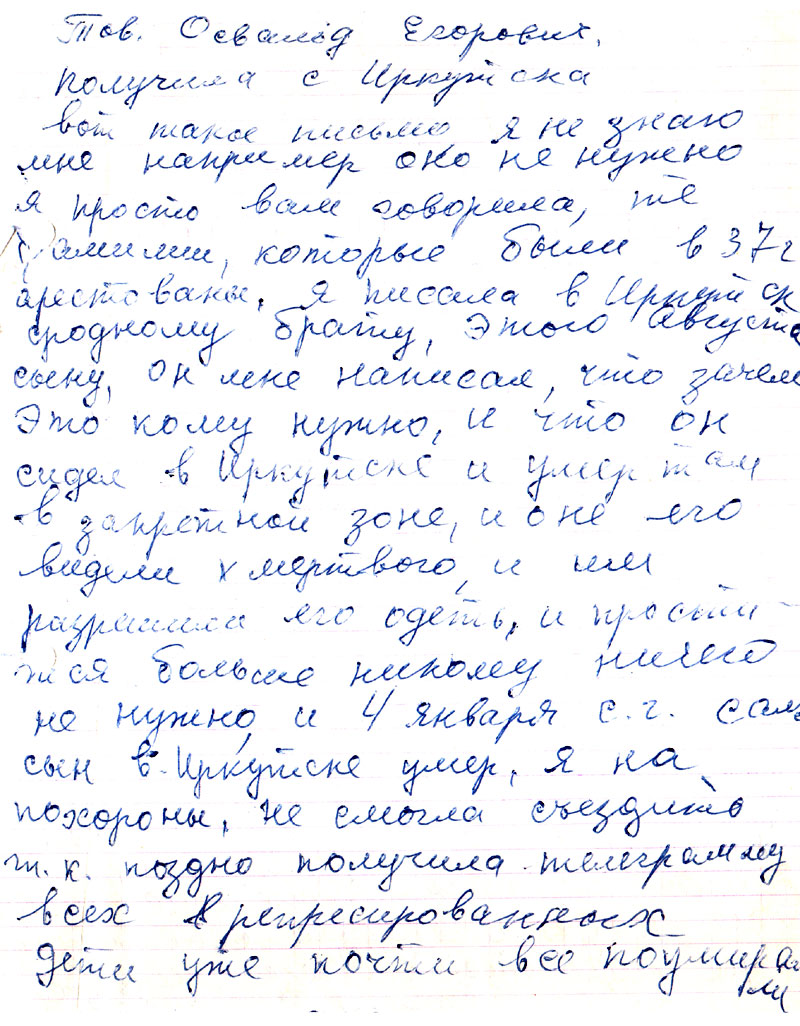 Тов. Освальд Егорович,
получила с Иркутска
вот такое письмо я не знаю
мне например оно не нужно
я просто вам говорила, те
фамилии, которые были в 37 г
арестованы. Я писала в Иркутск
сродному брату, этого Августа
сыну, он мне написал, что зачем
это кому нужно, и что он
сидел в Иркутске и умер там
в запретной зоне, и оне его
видели мертвого, и им
разрешили его одеть, и прости-
тся больше никому ничего
не нужно, и 4 января с.г. сам
сын в Иркутске умер, я на
похороны, не смогла съездить
т.к. поздно получила телеграмму
всех репресированных
дети уже почти все поумирали